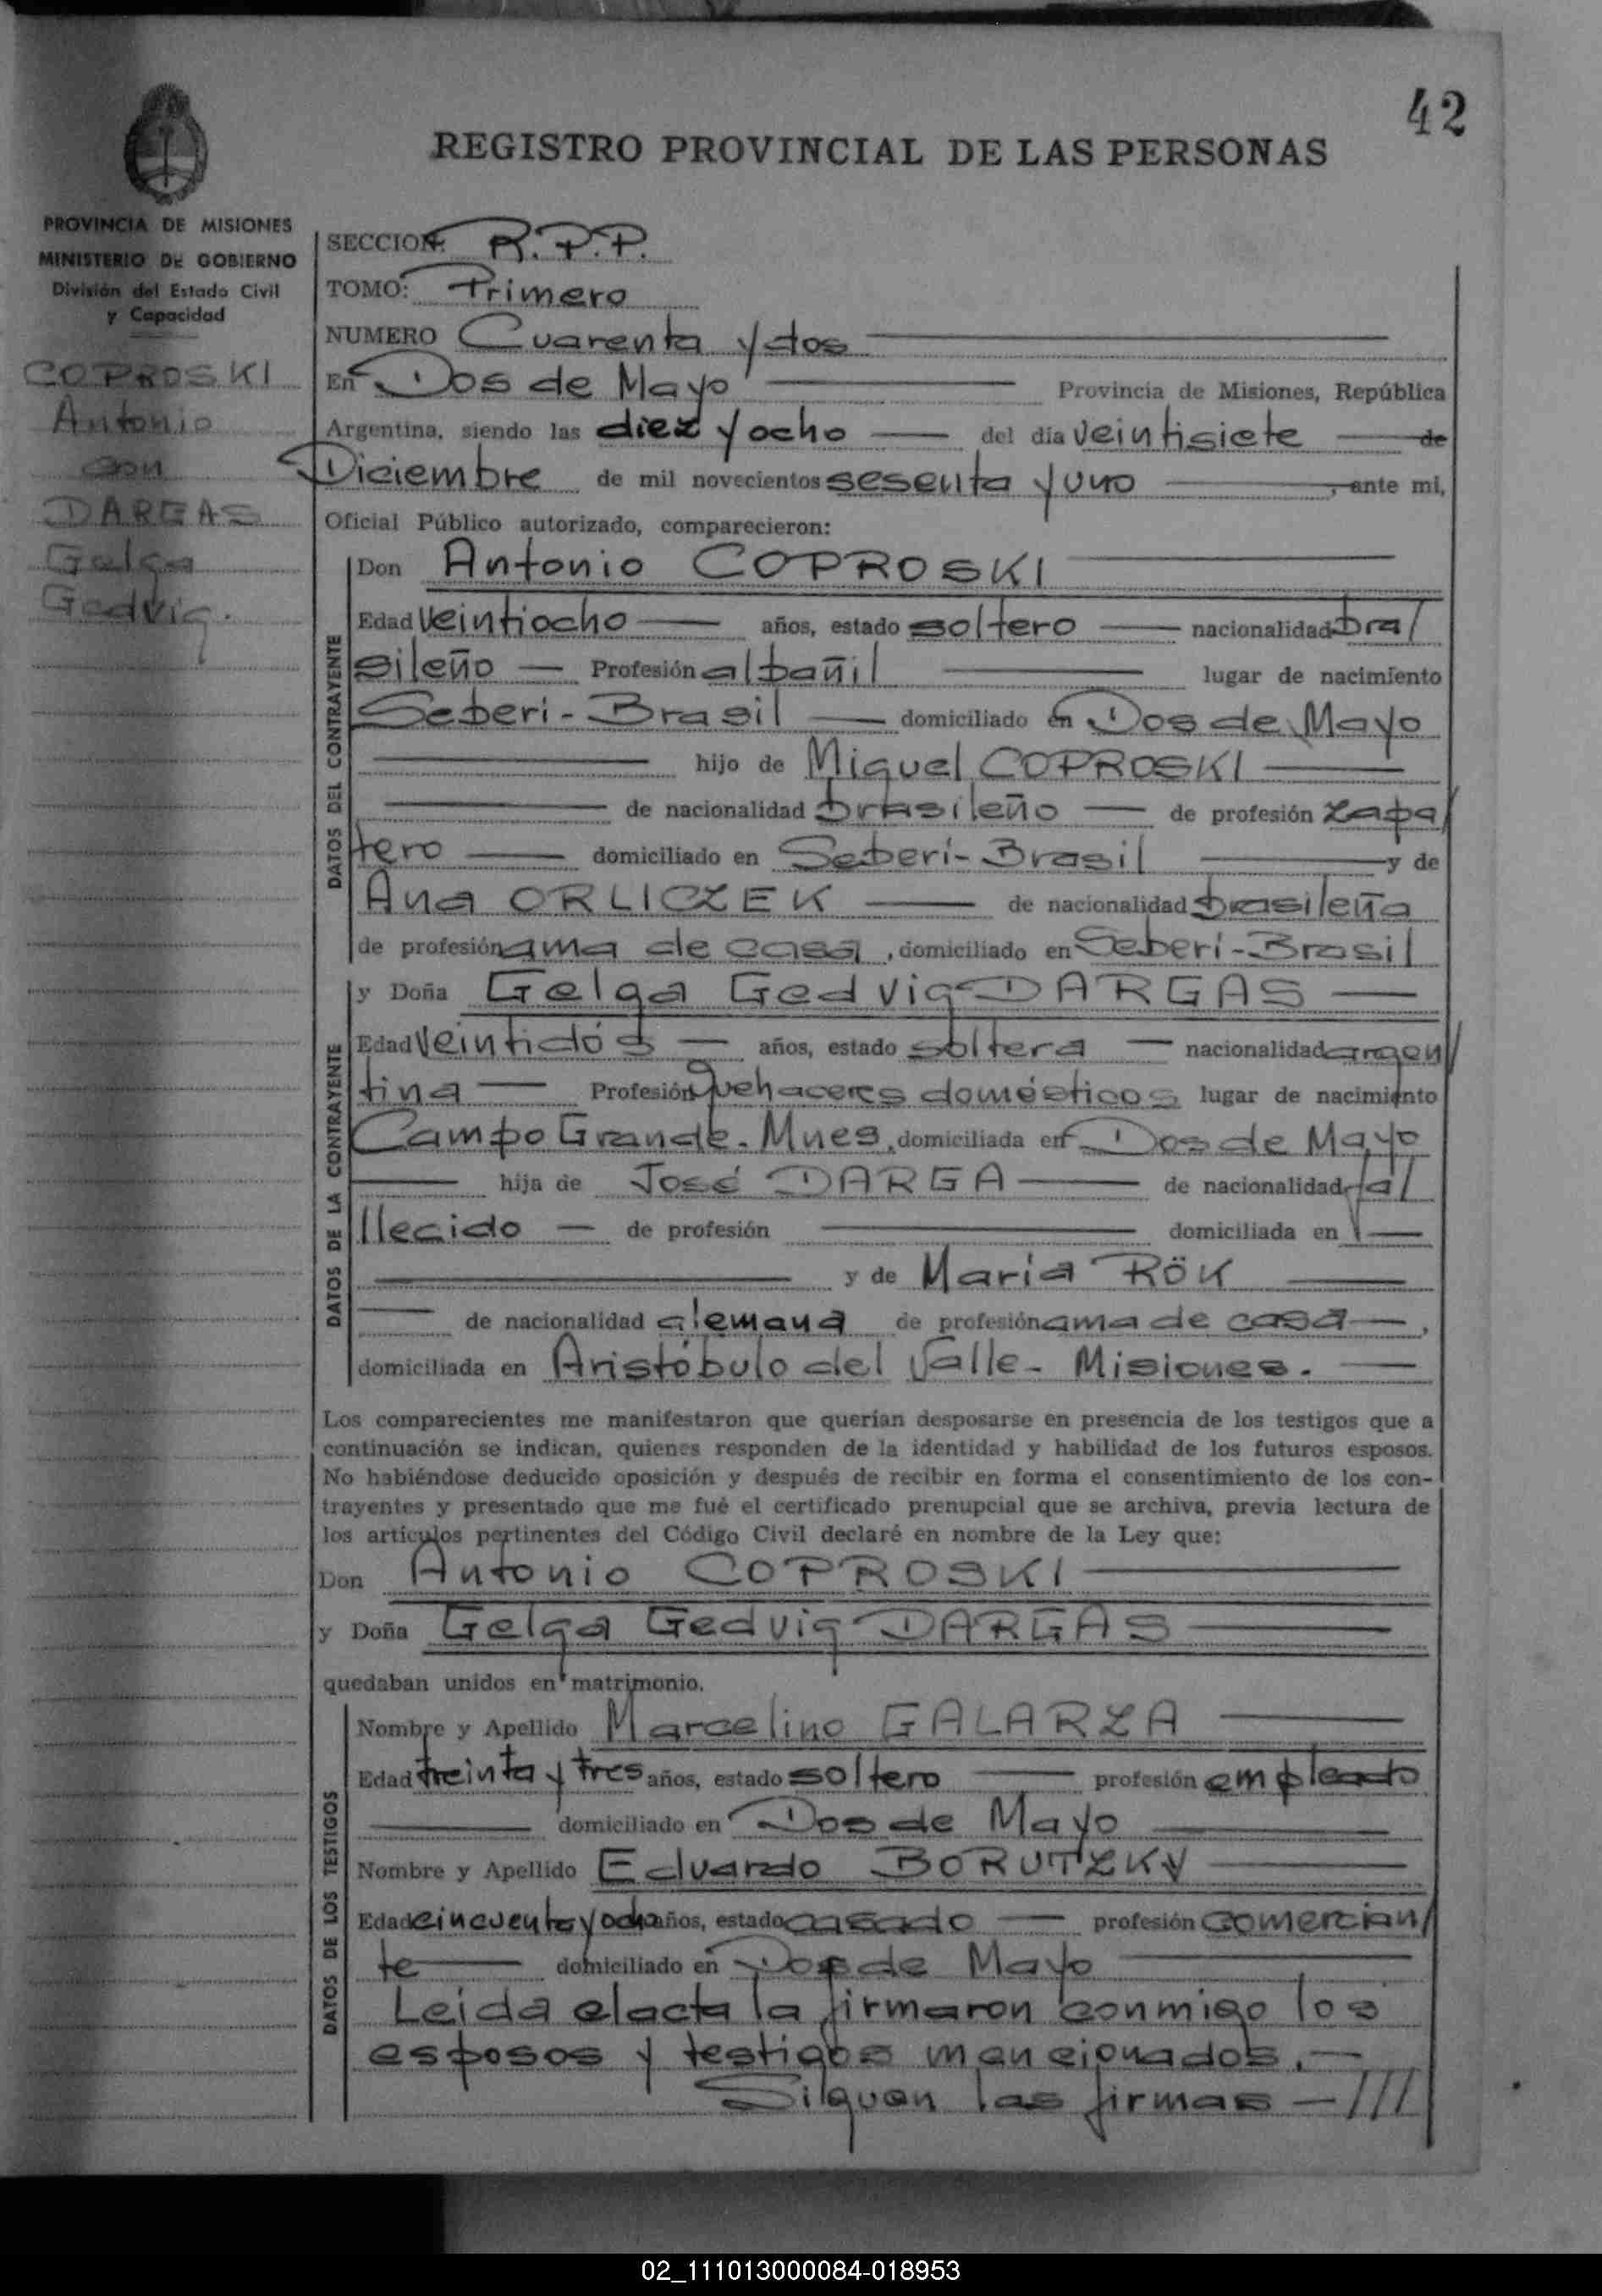 42
REGISTRO PROVINCIAL DE LAS PERSONAS
PROVINCIA DE MISIONES
MINISTERIO DE GOBIERNO
División del Estado Civil
y Capacidad
COPROSKI
Antonio
con
DARGAS
Gelga
Gedvig.
SECCION: R.P.P.
TOMO: Primero
NUMERO Cuarenta y dos
En Dos de Mayo Provincia de Misiones, República
Argentina, siendo las diez y ocho del día veintisiete de
Diciembre de mil novecientos sesenta y uno, ante mi,
Oficial Público autorizado, comparecieron:
DATOS DEL CONTRAYENTE
Don Antonio COPROSKI
Edad veintiocho años, estado soltero nacionalidad bra/
sileño Profesión albañil lugar de nacimiento
Seberi-Brasil domiciliado en Dos de Mayo
hijo de Miguel COPROSKI
de nacionalidad brasileño de profesión zapa/
tero domiciliado en Seberí-Brasil y de
Ana ORLICZEK de nacionalidad brasileña
de profesión ama de casa, domiciliado en Seberí-Brasil
DATOS DE LA CONTRAYENTE
y Doña Gelga Gedvig DARGAS
Edad veintidós años, estado soltera nacionalidad argen/
tina Profesión quehaceres domésticos lugar de nacimiento
Campo Grande. Mnes, domiciliada en Dos de Mayo
hija de José DARGA de nacionalidad fal/
llecido de profesión domiciliada en
y de María RÖK
de nacionalidad alemana de profesión ama de casa,
domiciliada en Aristóbulo del Valle- Misiones.
Los comparecientes me manifestaron que querían desposarse en presencia de los testigos que a
continuación se indican, quienes responden de la identidad y habilidad de los futuros esposos.
No habiéndose deducido oposición y después de recibir en forma el consentimiento de los con-
trayentes y presentado que me fué el certificado prenupcial que se archiva, previa lectura de
los artículos pertinentes del Código Civil declaré en nombre de la Ley que:
Don Antonio COPROSKI
y Doña Gelga Gedvig DARGAS
quedaban unidos en matrimonio.
DATOS DE LOS TESTIGOS
Nombre y Apellido Marcelino GALARZA
Edad treinta y tres años, estado soltero profesión empleado
domiciliado en Dos de Mayo
Nombre y Apellido Eduardo BORUTZKY
Edad cincuenta y ocho años, estado casado profesión comercian/
te domiciliado en Dos de Mayo
Leida el acta la firmaron conmigo los
esposos y testigos mencionados.-
Silguen las firmas -///
02_111013000084-018953